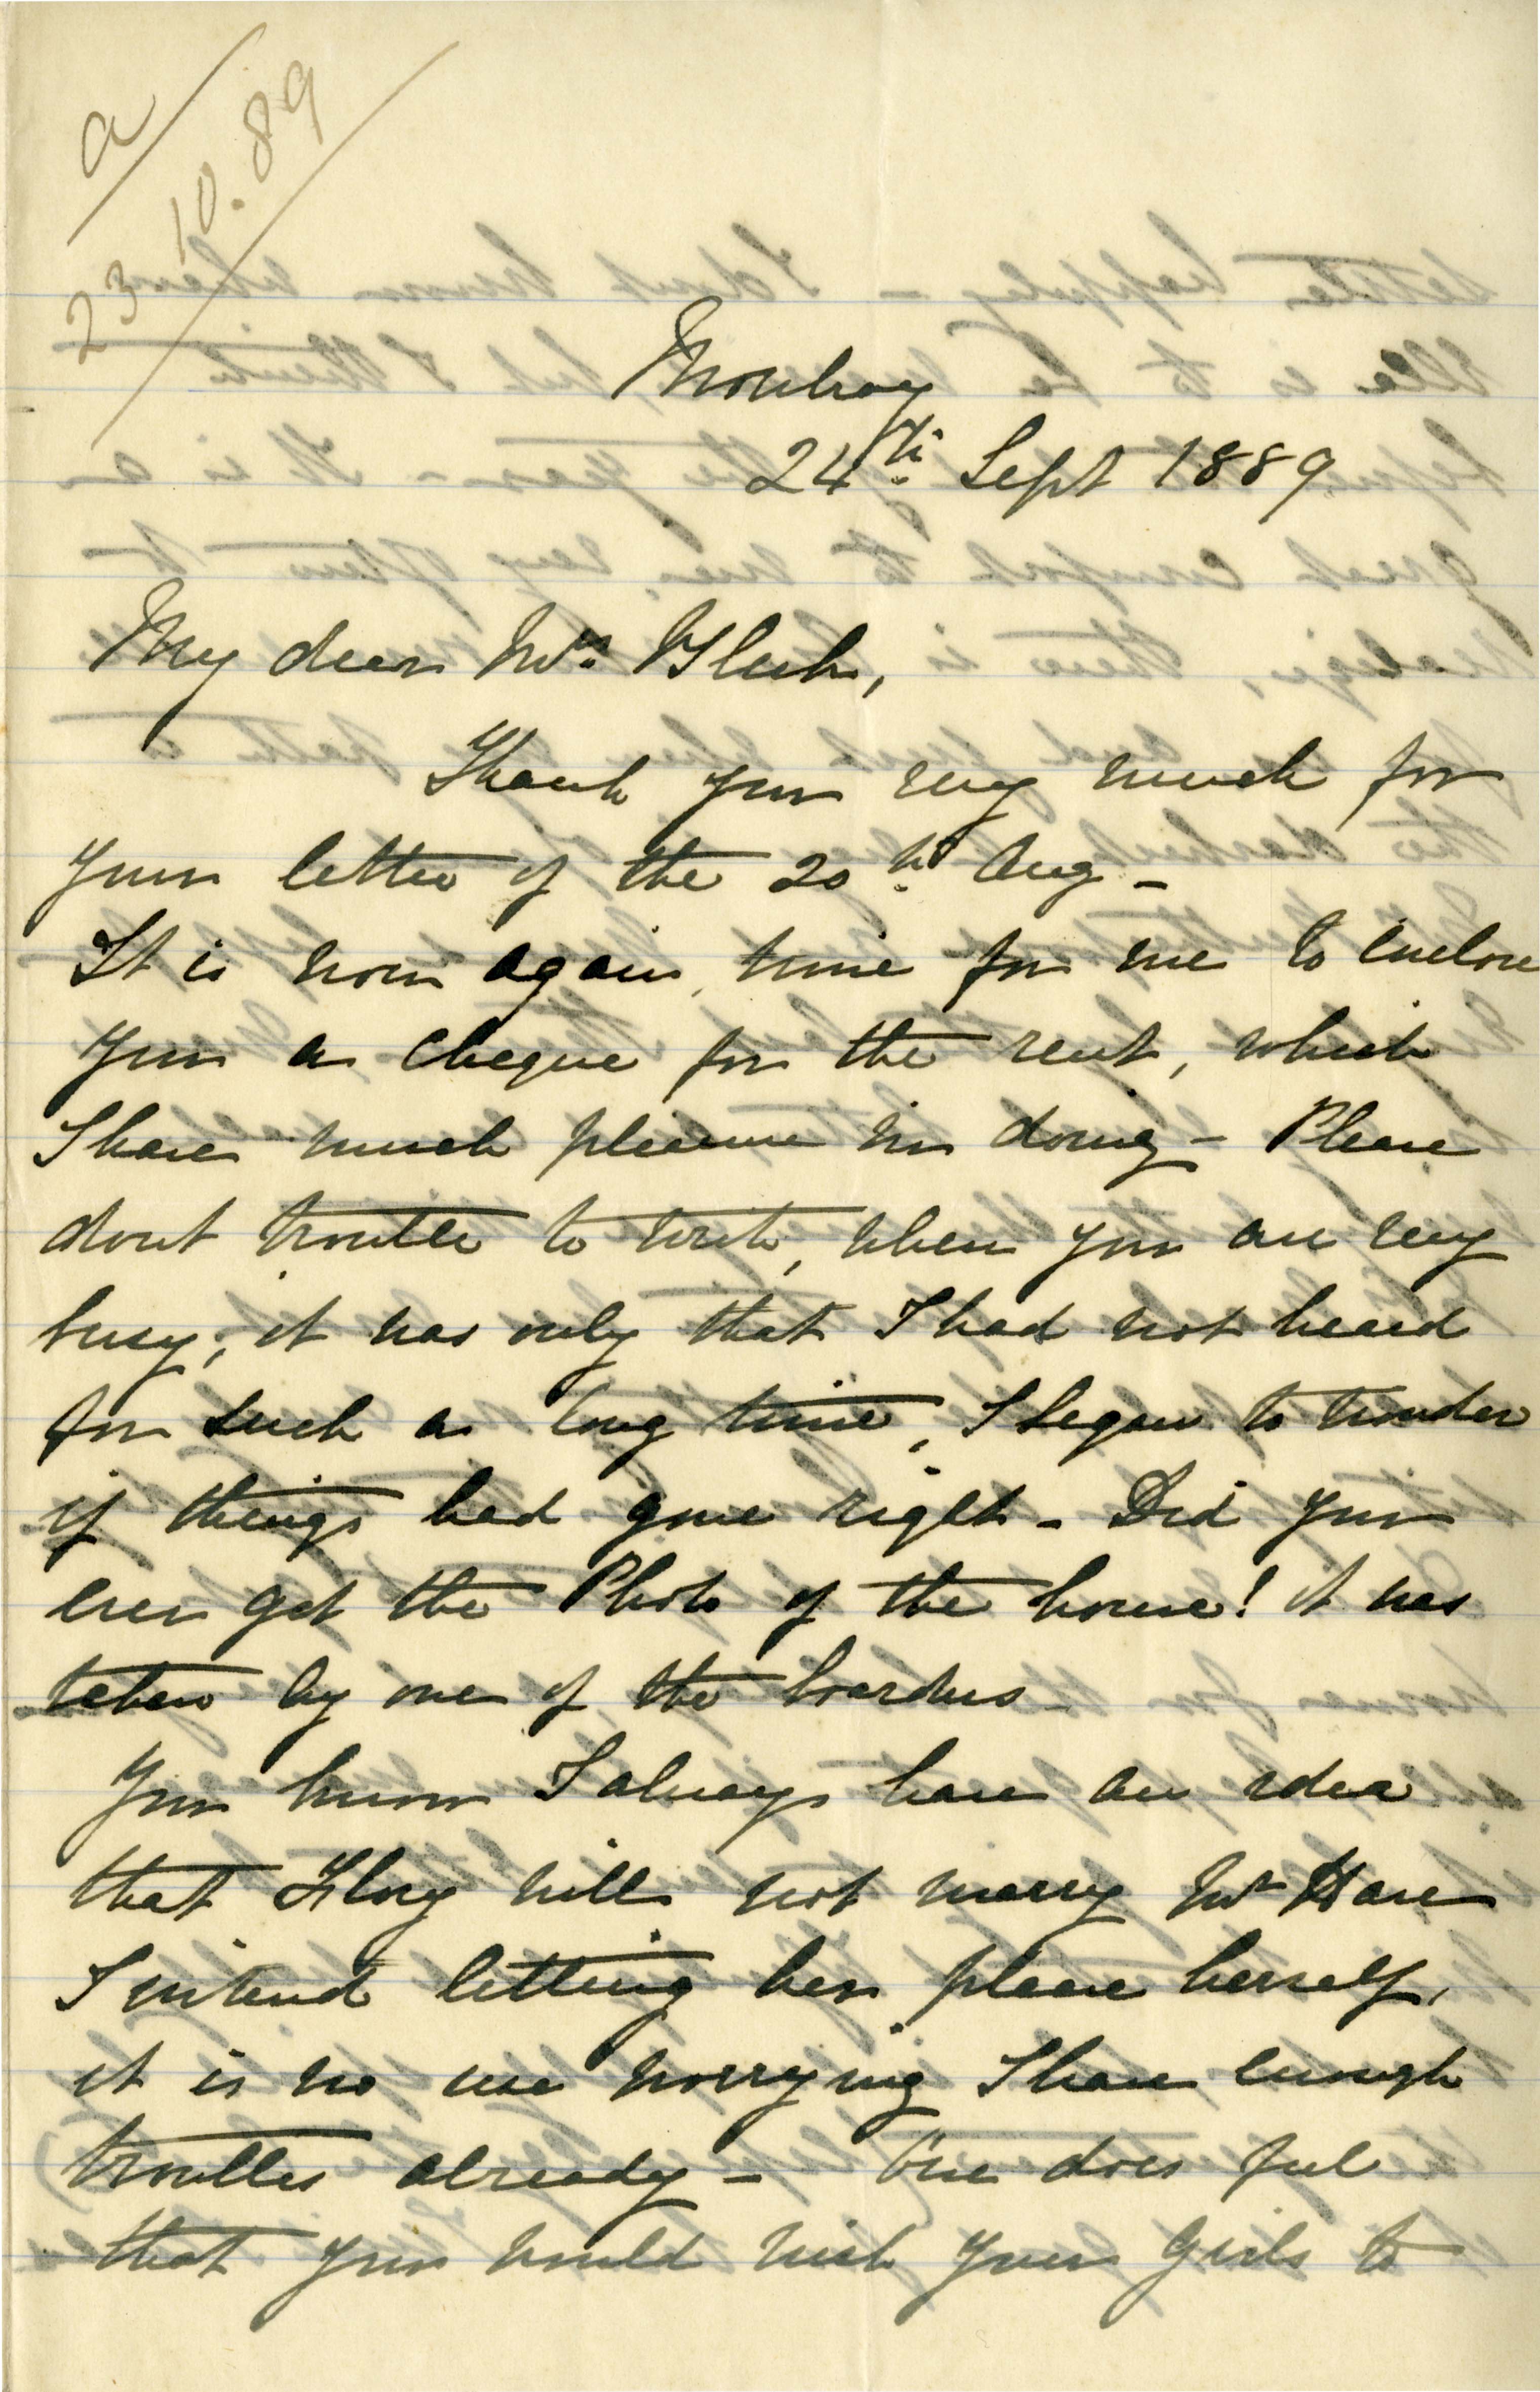 a/
23 10.89/
Mowbray
24th Sept 1889
My dear Mrs. Bleek,
Thank you very much for
your letter of the 20th Aug -
It is now again, time for me to enclose
you a cheque for the rent, which
I have much pleasure in doing - Please
dont trouble to write, when you are very
busy; it was only that I had not heard
for such a long time, I began to wonder
if things had gone right - Did you
ever get the Photo of the house! it was
taken by one of the boarders -
You know I always have an idea
that Flory will not marry Mr Hare
I intend letting her please herself,
it is no use worrying I have enough
troubles already - One does feel
that you would wish your girls to